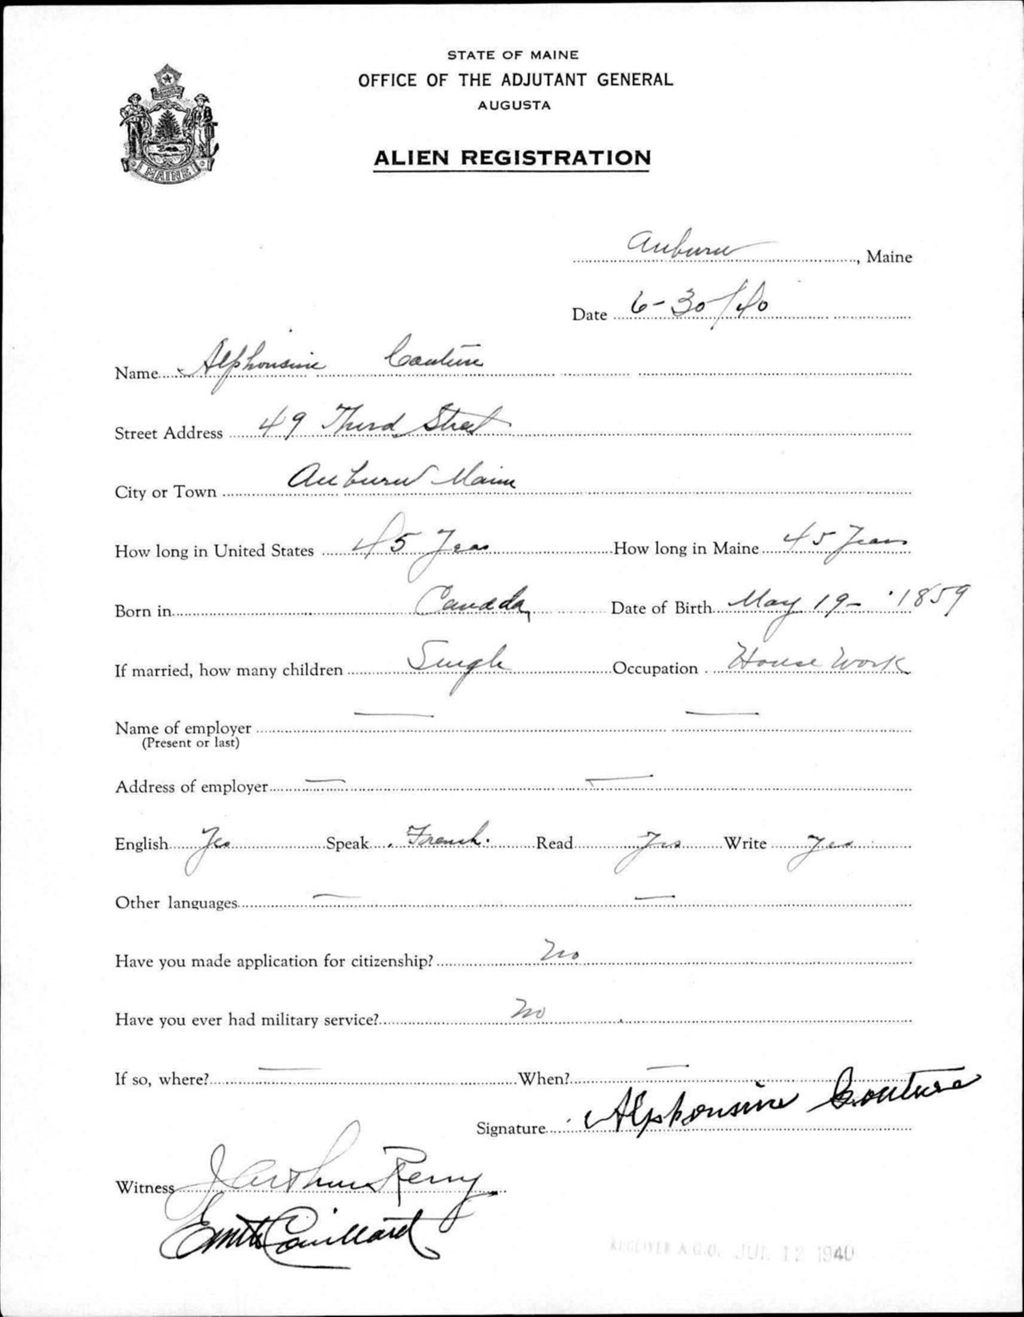 STATE OF MAINE
OFFICE OF THE ADJUTANT GENERAL
AUGUSTA
ALIEN REGISTRATION
MAINE
Auburn, Maine
Date 6-30/40
Name Alphonsine Couture
Street Address 49 Third Street
City or Town Auburn Maine
How long in United States 45 Years How long in Maine 45 Years
Born in Canada Date of Birth May 19 - 1859
If married, how many children Single Occupation House Work
Name of employer
(Present or last)
Address of employer
English Yes Speak French. Read Yes Write Yes
Other languages
Have you made application for citizenship? No
Have you ever had military service? No
If so, where? When?
Signature Alphonsine Couture
Witness J Arthur Remy
Couillard
RECEIVED A.G.O. JUL 12 1940